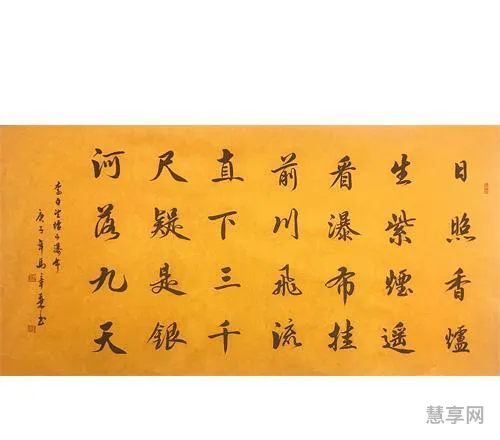 日照香爐
生紫煙遥
看瀑布挂
前川飛流
直下三千
尺疑是銀
河落九天
李白望廬山瀑布
庚子年馬
慧享网